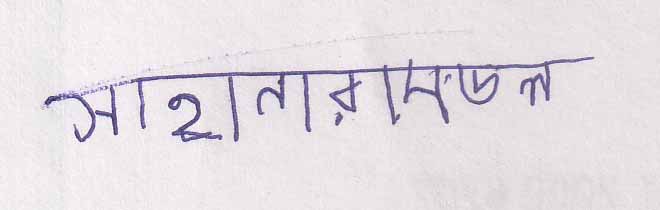 সাহানারা মন্ডল